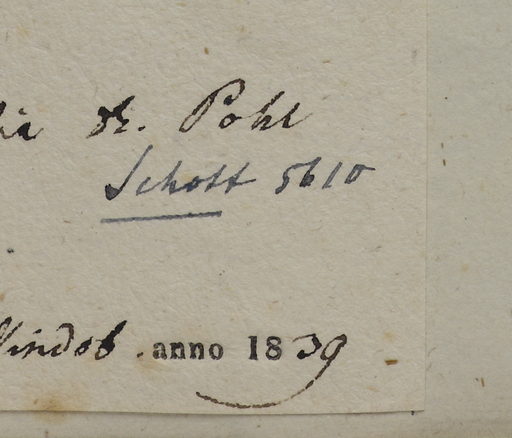 Dr. Pohl
Schott 5610
Vindob. anno 1839